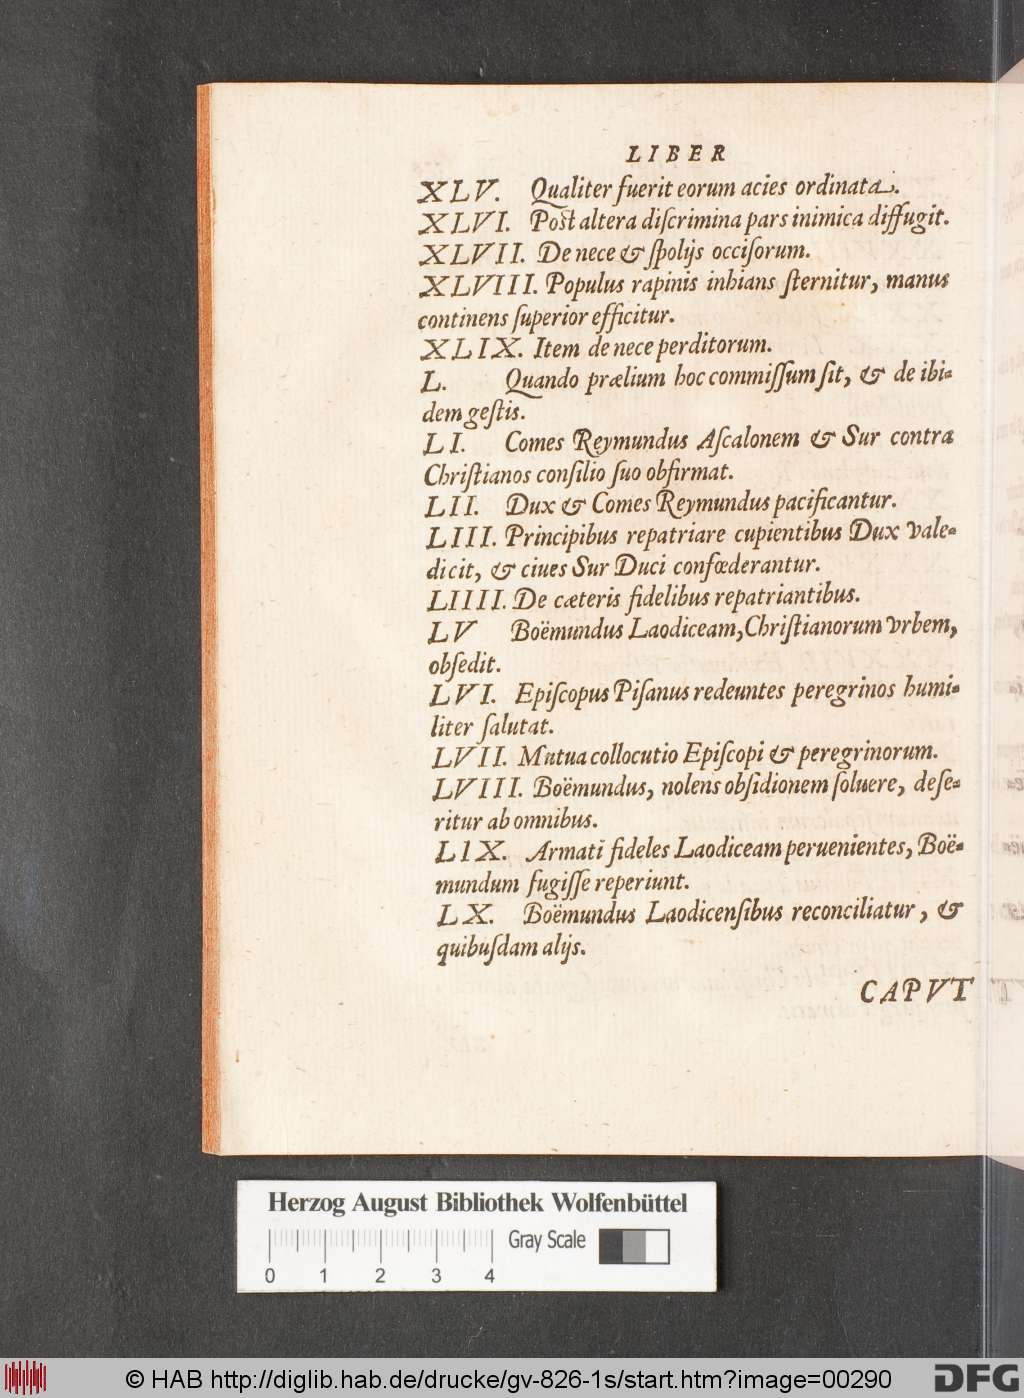 LIBER
XLV. Qualiter fuerit eorum acies ordinata.
XLVI. Post altera discrimina pars inimica diffugit.
XLVII. De nece & spolijs occisorum.
XLVIII. Populus rapinis inhians sternitur, manus
continens superior efficitur.
XLIX. Item de nece perditorum.
L. Quando prælium hoc commissum sit, & de ibi-
dem gestis.
LI. Comes Reymundus Ascalonem & Sur contra
Christianos consilio suo obfirmat.
LII. Dux & Comes Reymundus pacificantur.
LIII. Principibus repatriare cupientibus Dux vale-
dicit, & ciues Sur Duci confœderantur.
LIIII. De cæteris fidelibus repatriantibus.
LV Boëmundus Laodiceam, Christianorum vrbem,
obsedit.
LVI. Episcopus Pisanus redeuntes peregrinos humi-
liter salutat.
LVII. Mutua collocutio Episcopi & peregrinorum.
LVIII. Boëmundus, nolens obsidionem soluere, dese-
ritur ab omnibus.
LIX. Armati fideles Laodiceam peruenientes, Boë-
mundum fugisse reperiunt.
LX. Boëmundus Laodicensibus reconciliatur, &
quibusdam alijs.
CAPVT
Herzog August Bibliothek Wolfenbüttel
Gray Scale
0 1 2 3 4
© HAB http://diglib.hab.de/drucke/gv-826-1s/start.htm?image=00290
DFG